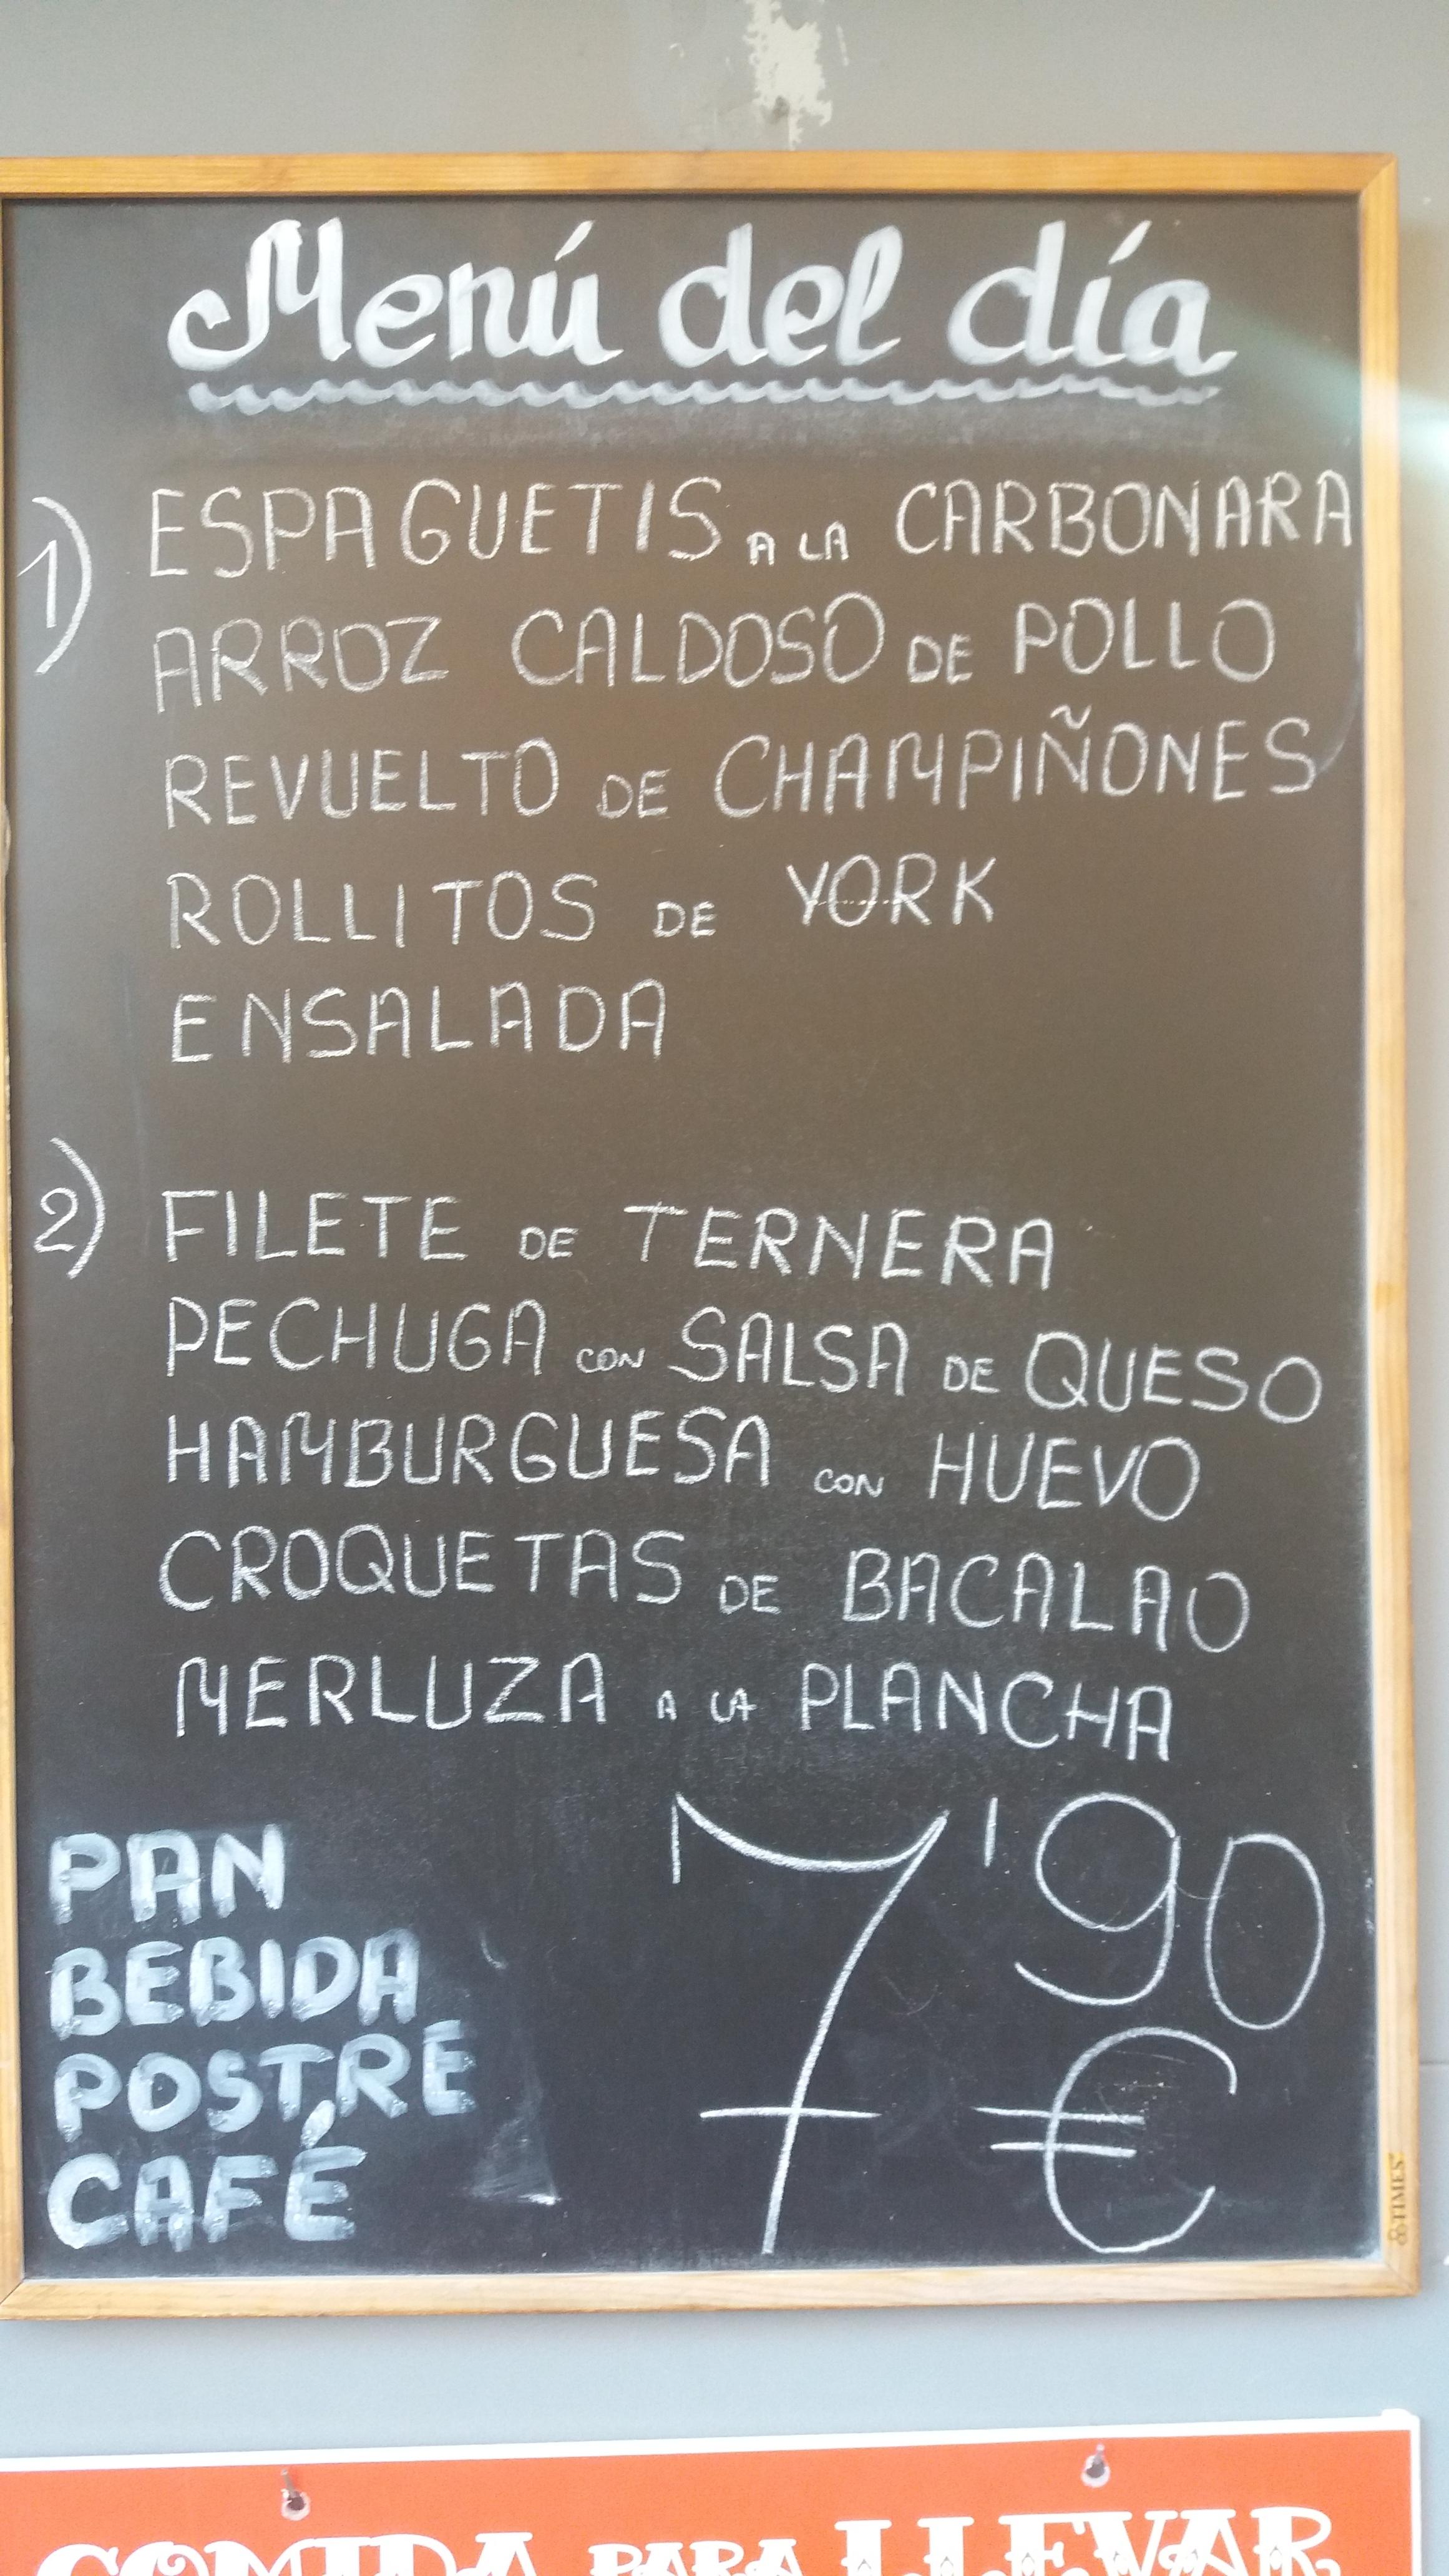 Menú del día
1) ESPAGUETIS A LA CARBONARA
ARROZ CALDOSO DE POLLO
REVUELTO DE CHAMPIÑONES
ROLLITOS DE YORK
ENSALADA
2) FILETE DE TERNERA
PECHUGA CON SALSA DE QUESO
HAMBURGUESA CON HUEVO
CROQUETAS DE BACALAO
MERLUZA A LA PLANCHA
PAN
BEBIDA
POSTRE
CAFÉ
7'90
€
TIMES
COMIDA PARA LLEVAR